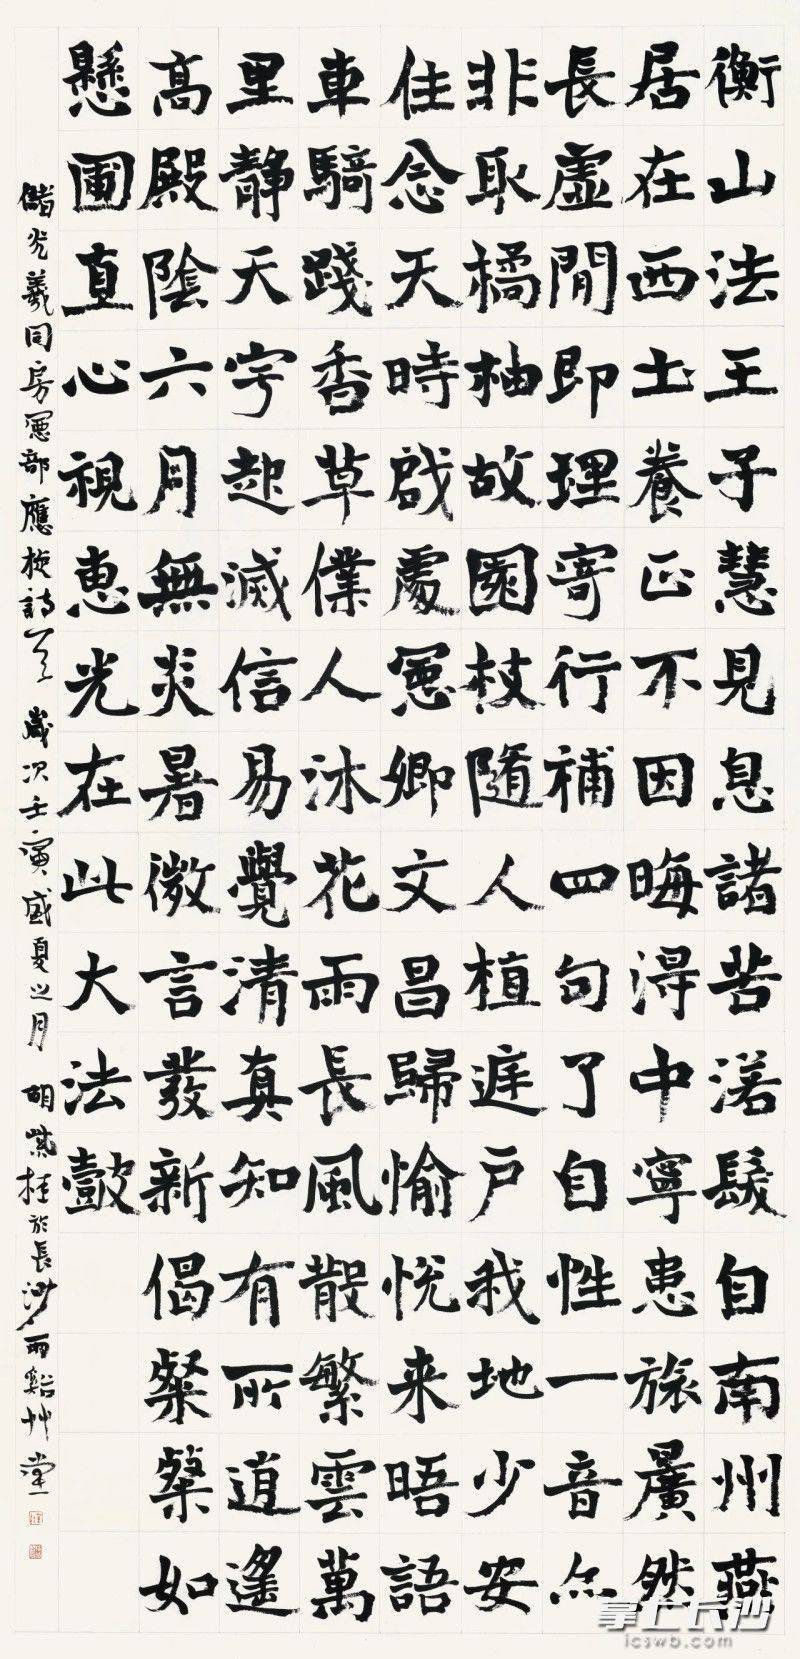 衡山法王子慧見息諸苦落髮自南州燕
居在西土養正不因晦得中寧患旅曠然
長虛閒即理寄行補四句了自性一音亦
非取橘柚故園枝隨人植庭戶我地少安
住念天時啟處憲卿文昌歸愉悅来晤語
車騎踐香草僕人沐花雨長風散繁雲萬
里靜天宇起滅信易覺清真知有所逍遙
高殿陰六月無炎暑微言發新偈粲粲如
懸圃直心視惠光在此大法鼓
儲光羲同房憲部應旋詩一首 歲次壬寅盛夏之月 胡紫桂於長沙雨谿艸堂
掌上长沙
icswb.com